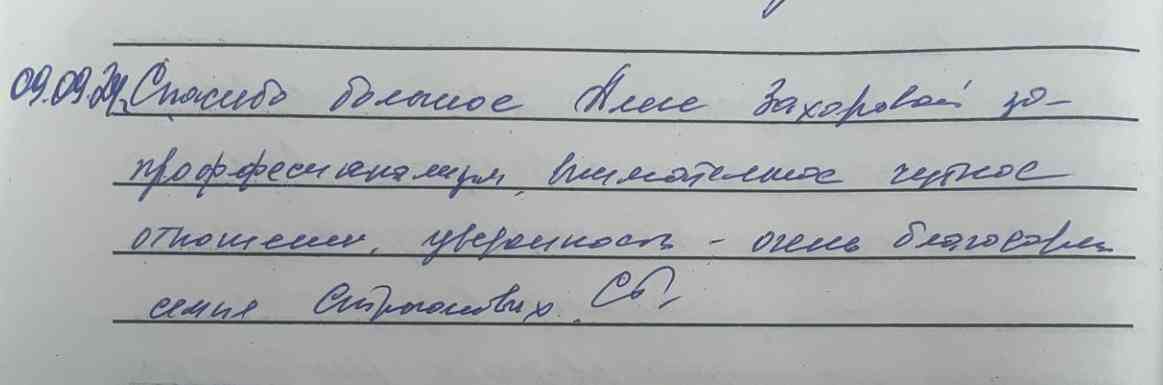 09.09.24. Спасибо большое Алле Захаровой за
профессионализм, внимательное чуткое
отношение, уверенность - очень благодарны
семья